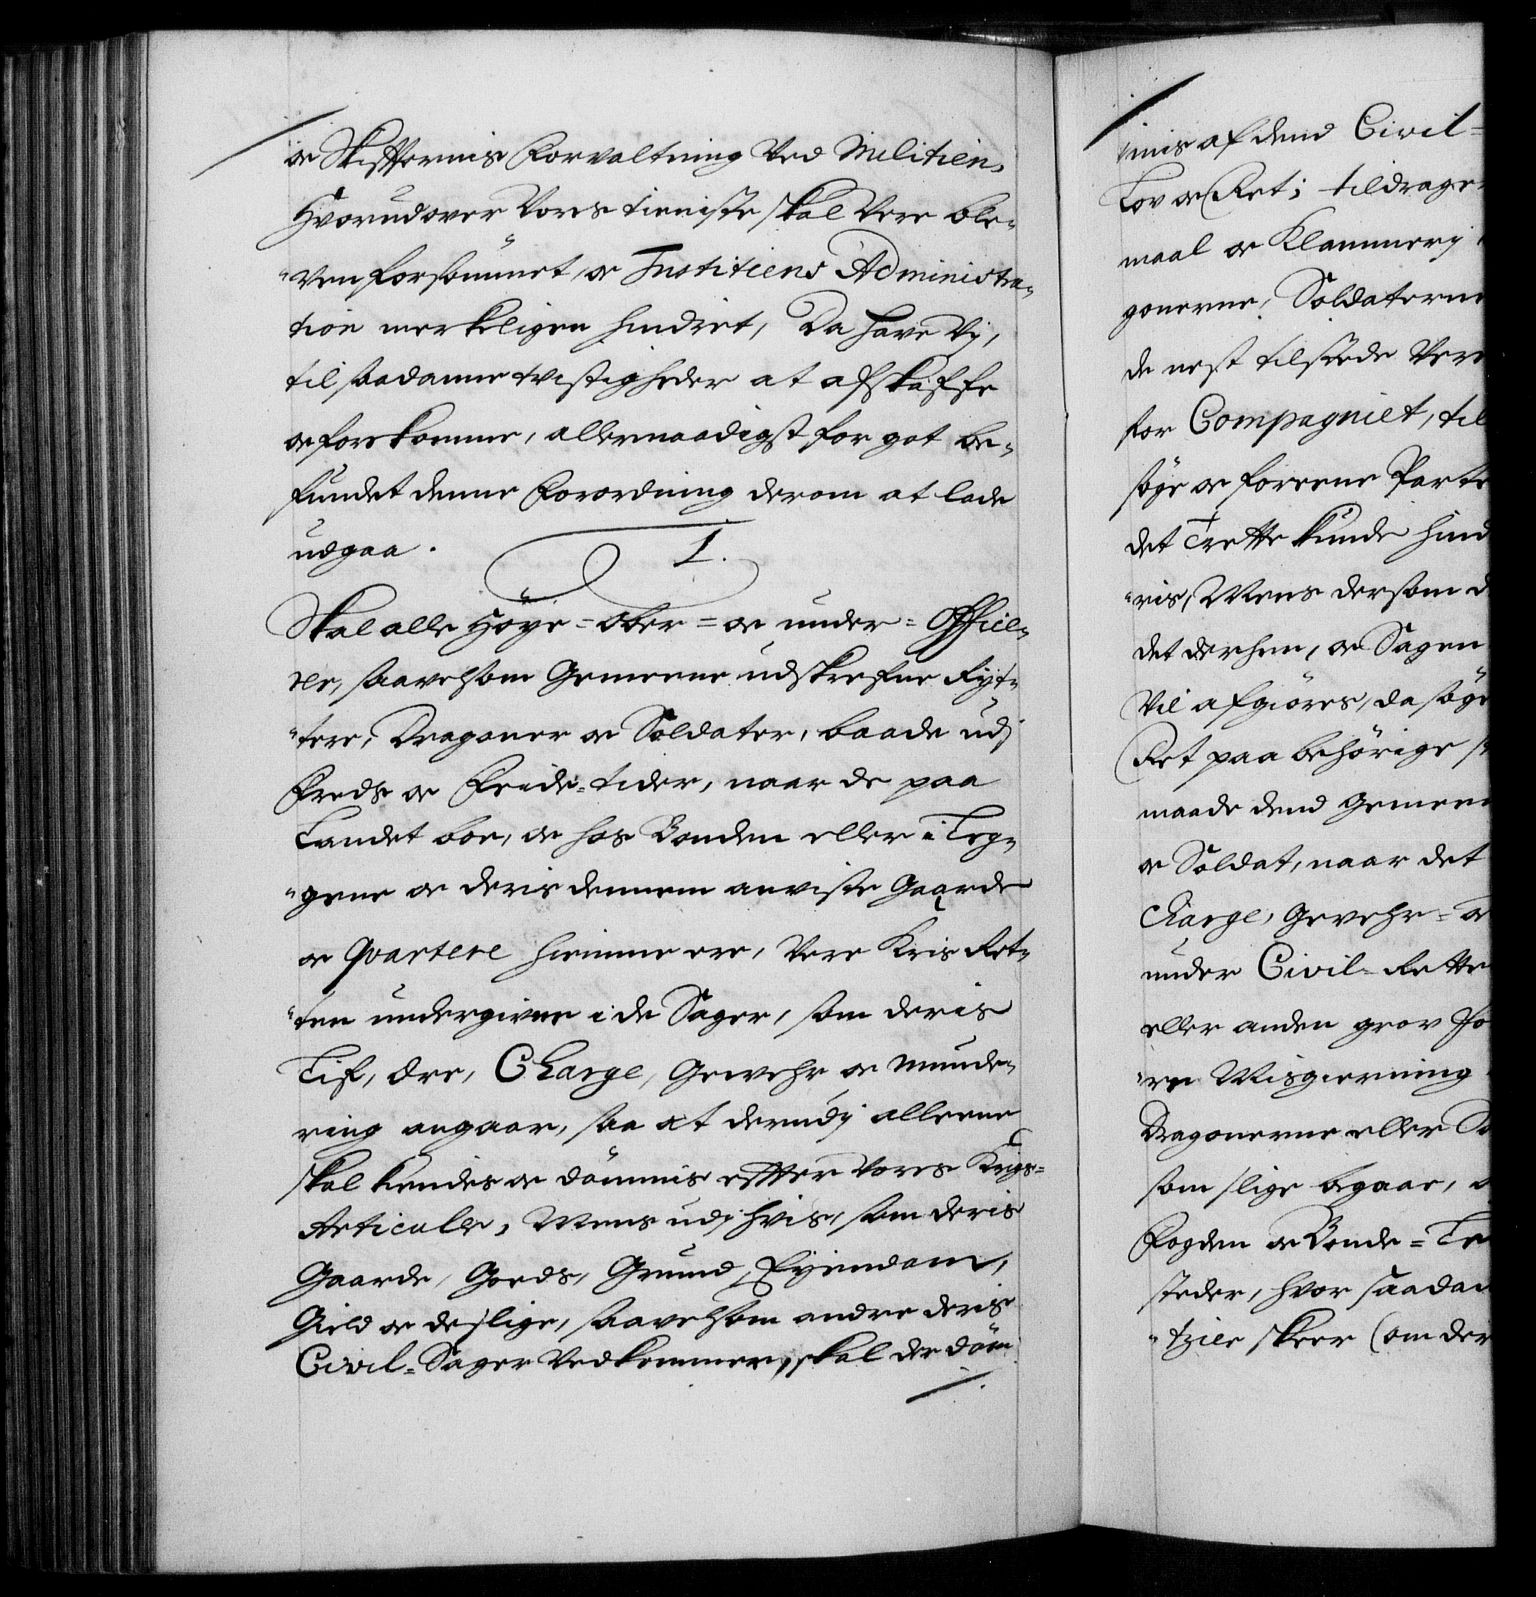 oc Skiffternis Forvaltning ved Militien,
Hvorudover Vores tieniste skal vere ble-
"ven forsømmet oc Justitiens Administra-
tion merkeligen hindret, Da have Vj,
til saadanne tvistigheder at afskaffe
oc forekomme, allernaadigst for got be-
fundet denne Forordning derom at lade
udgaa.
1.
Skal alle Høye- ober- oc under- Officie-
rer, saavelsom Gemeene udskrefne Ryt-
"tere, Dragoner oc Soldater, baade udj
Freds oc Feide-tider, naar de paa
Landet boe, oc hos Bonden eller i Leg-
"gene oc deris dennem anviste Gaarde
oc Qvartere hiemme ere, vere Kris Ret-
"ten undergivne i de Sager, som deris
Lif, ære, Charge, Gewehr oc munde-
ring angaar, saa at derudj alleene
skal kiendes oc dømmis effter Vores Krigs-
Articule, Mens udj hvis, som deris
Gaarde, Goeds, Grund, Eyendom,
Gield oc deslige, saavelsom andre deris
Civil-Sager vedkommer, skal der døm
mis af dend Civil-
Lov oc Ret; tildrager
maal oc Klammerj
gonerne, Soldaterne
de nest tilstede Vere
for Compagniet, til
søge oc foreene Parte
det Trette kunde hind
"ris, Mens dersom d
det derhen, oc Sagen
Vil afgiøres, da søge
Ret paa behørige st
maade dend gemeen
oc Soldat, naar det
Charge, Gevehr- oc
under Civil-Rette
eller anden grov fo
"re Misgierning
Dragonerne eller So
som slige begaar, a
Fogden oc Bonde-Le
steder, hvor saadan
"tzier skeer (om der